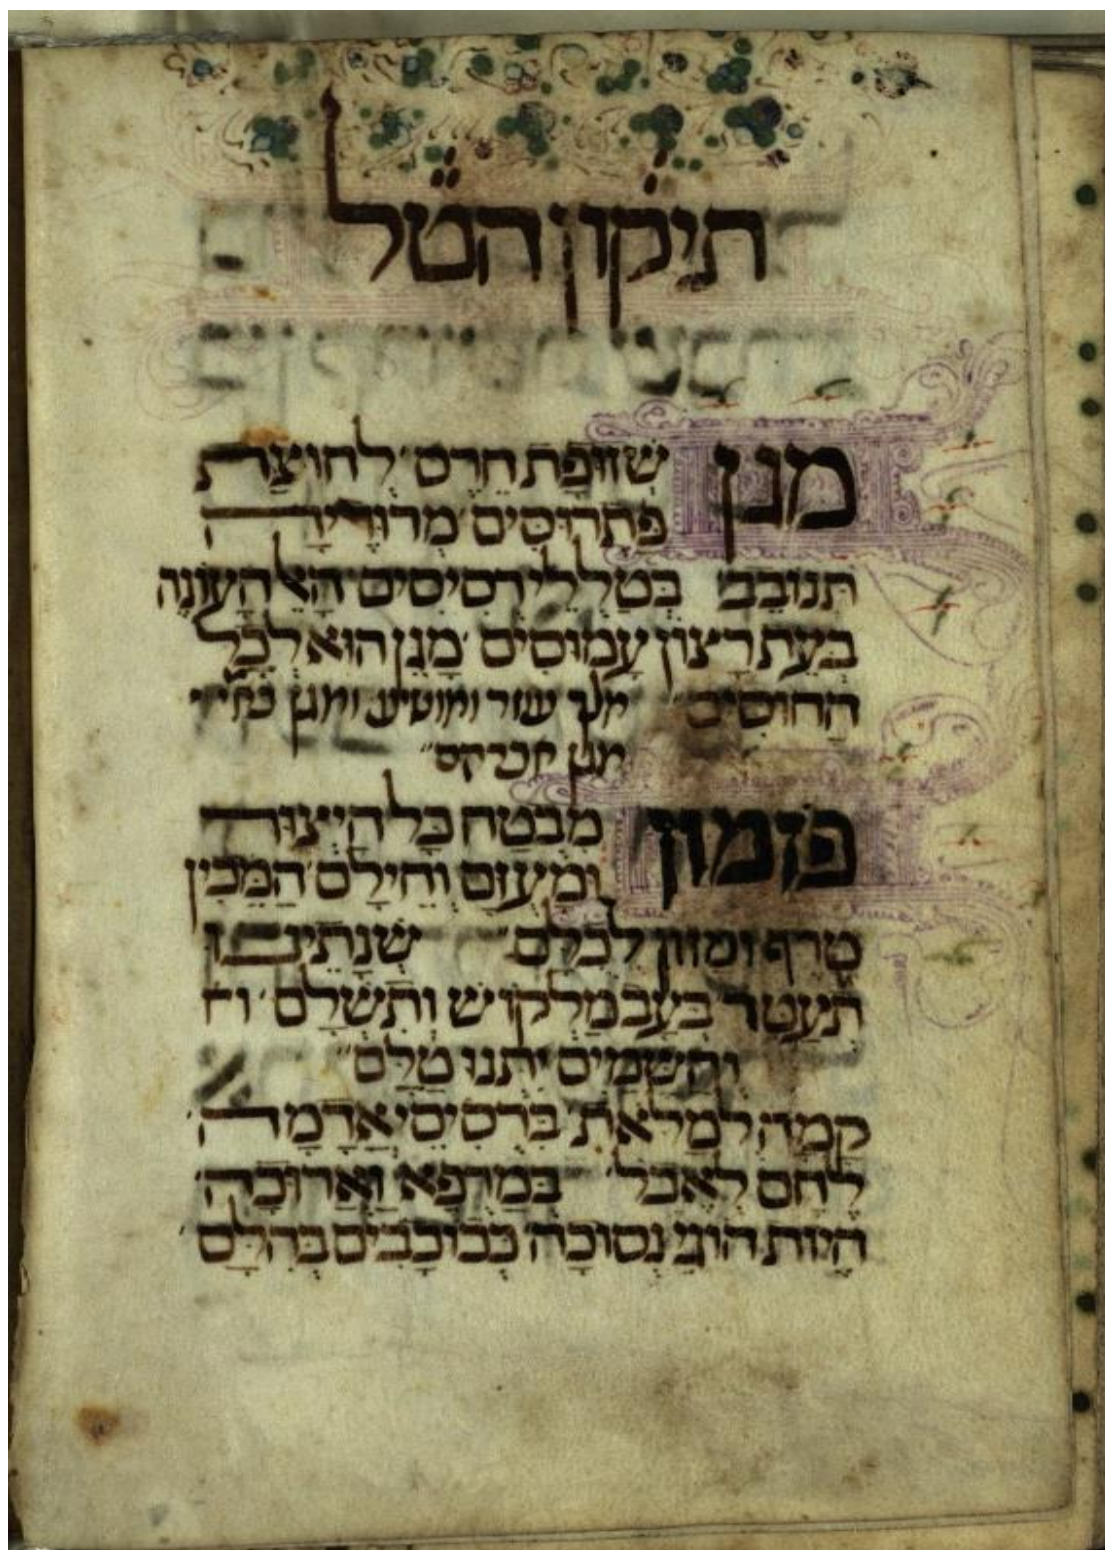 תיקון הטל
מגן שזופת חרס לחוצת
פתרוסים מרודיה
תנובב בטללי רסיסים הא העונה
בעת רצון עמוסים מגן הוא לכל
החוסים מלך עוזר ומושיע ומגן
מגן אברהם
פזמון מבטח כל היצור
ומעוזם וחילם המכין
טרף ומזון לכלם שנתינו
תעטר בעב מלקוש ותשלם וח
והשמים יתנו טלם
קמה למלאת ברסיסי אדמה
לחם לאכל במרפא וארוכה
היות הוגי נסוכה ככוכבים בהלם